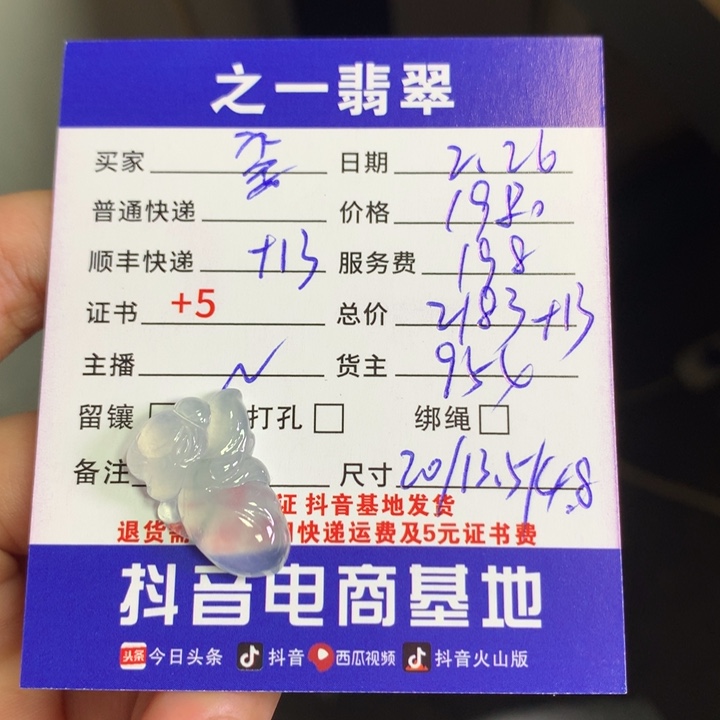 之一翡翠
买家 日期 2.26
普通快递 价格 1980
顺丰快递 +13 服务费 198
证书 +5 总价 2183+13
主播 货主 954
留镶 打孔 绑绳
备注 尺寸 20/13.5/4.8
证 抖音基地发货
退货需 快递运费及5元证书费
抖音电商基地
头条 今日头条 抖音 西瓜视频 抖音火山版